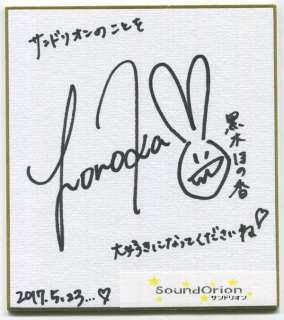 サンドリオンのことを
Honoka
黒木ほの香
大好きになってくださいね♡
2017.5.23...♡
SoundOrion
サンドリオン